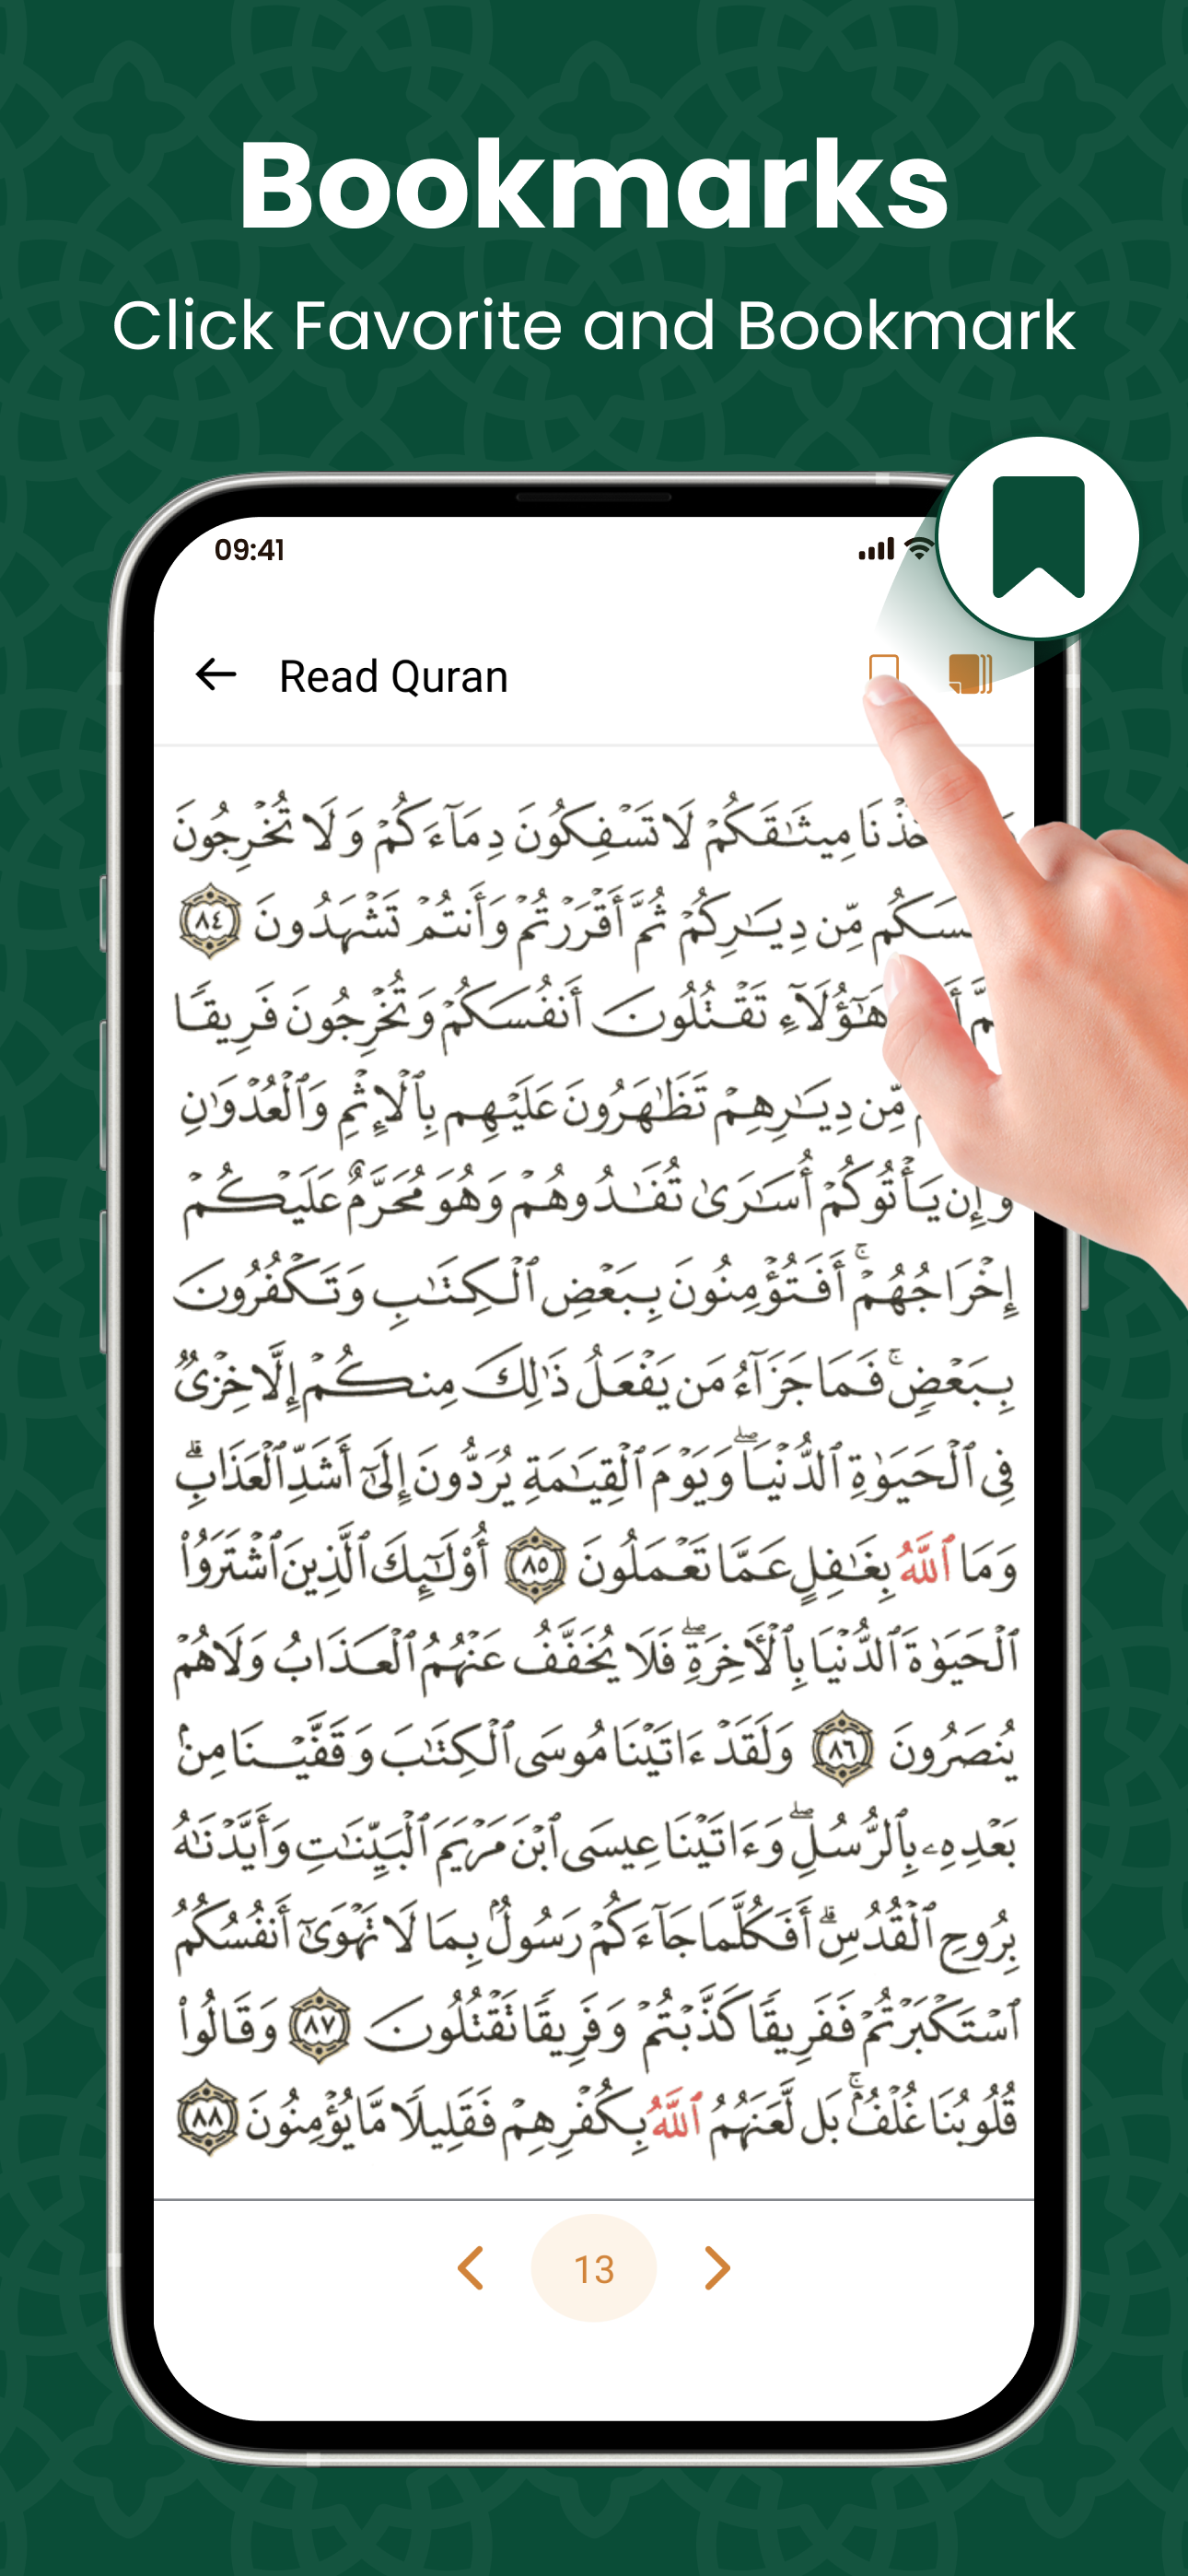 Bookmarks
Click Favorite and Bookmark
09:41
Read Quran
مِيثَٰقَكُمْ لَا تَسْفِكُونَ دِمَآءَكُمْ وَلَا تُخْرِجُونَ
مِّن دِيَٰرِكُمْ ثُمَّ أَقْرَرْتُمْ وَأَنتُمْ تَشْهَدُونَ ٨٤
هَٰٓؤُلَآءِ تَقْتُلُونَ أَنفُسَكُمْ وَتُخْرِجُونَ فَرِيقًا
مِّن دِيَٰرِهِمْ تَظَٰهَرُونَ عَلَيْهِم بِٱلْإِثْمِ وَٱلْعُدْوَٰنِ
وَإِن يَأْتُوكُمْ أُسَٰرَىٰ تُفَٰدُوهُمْ وَهُوَ مُحَرَّمٌ عَلَيْكُمْ
إِخْرَاجُهُمْ ۚ أَفَتُؤْمِنُونَ بِبَعْضِ ٱلْكِتَٰبِ وَتَكْفُرُونَ
بِبَعْضٍ ۚ فَمَا جَزَآءُ مَن يَفْعَلُ ذَٰلِكَ مِنكُمْ إِلَّا خِزْىٌ
فِى ٱلْحَيَوٰةِ ٱلدُّنْيَا ۖ وَيَوْمَ ٱلْقِيَٰمَةِ يُرَدُّونَ إِلَىٰٓ أَشَدِّ ٱلْعَذَابِ ۗ
وَمَا ٱللَّهُ بِغَٰفِلٍ عَمَّا تَعْمَلُونَ ٨٥ أُو۟لَٰٓئِكَ ٱلَّذِينَ ٱشْتَرَوُا۟
ٱلْحَيَوٰةَ ٱلدُّنْيَا بِٱلْـَٔاخِرَةِ ۖ فَلَا يُخَفَّفُ عَنْهُمُ ٱلْعَذَابُ وَلَا هُمْ
يُنصَرُونَ ٨٦ وَلَقَدْ ءَاتَيْنَا مُوسَى ٱلْكِتَٰبَ وَقَفَّيْنَا مِنۢ
بَعْدِهِۦ بِٱلرُّسُلِ ۖ وَءَاتَيْنَا عِيسَى ٱبْنَ مَرْيَمَ ٱلْبَيِّنَٰتِ وَأَيَّدْنَٰهُ
بِرُوحِ ٱلْقُدُسِ ۗ أَفَكُلَّمَا جَآءَكُمْ رَسُولٌۢ بِمَا لَا تَهْوَىٰٓ أَنفُسُكُمُ
ٱسْتَكْبَرْتُمْ فَفَرِيقًا كَذَّبْتُمْ وَفَرِيقًا تَقْتُلُونَ ٨٧ وَقَالُوا۟
قُلُوبُنَا غُلْفٌۢ ۚ بَل لَّعَنَهُمُ ٱللَّهُ بِكُفْرِهِمْ فَقَلِيلًا مَّا يُؤْمِنُونَ ٨٨
13